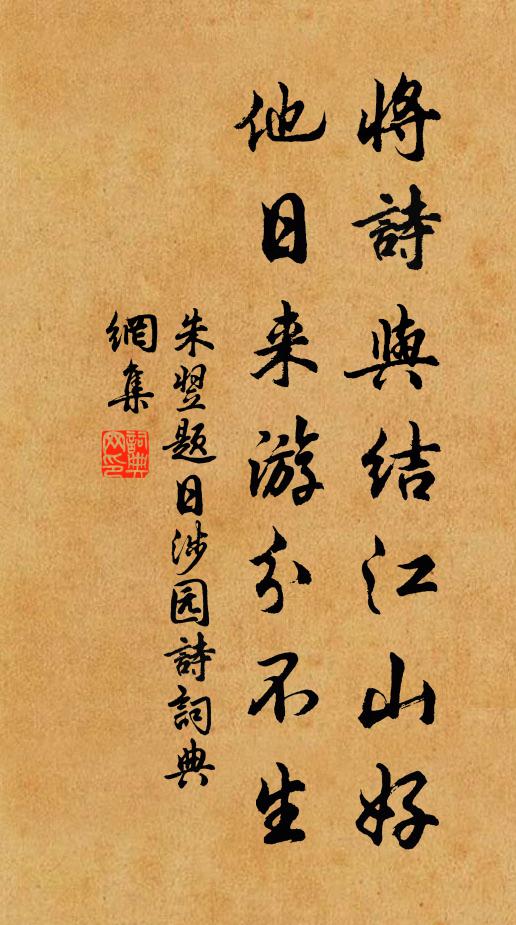 將詩與结江山好
他日来游分不生
朱翌题日涉园詩詞典
網集
詞典网印